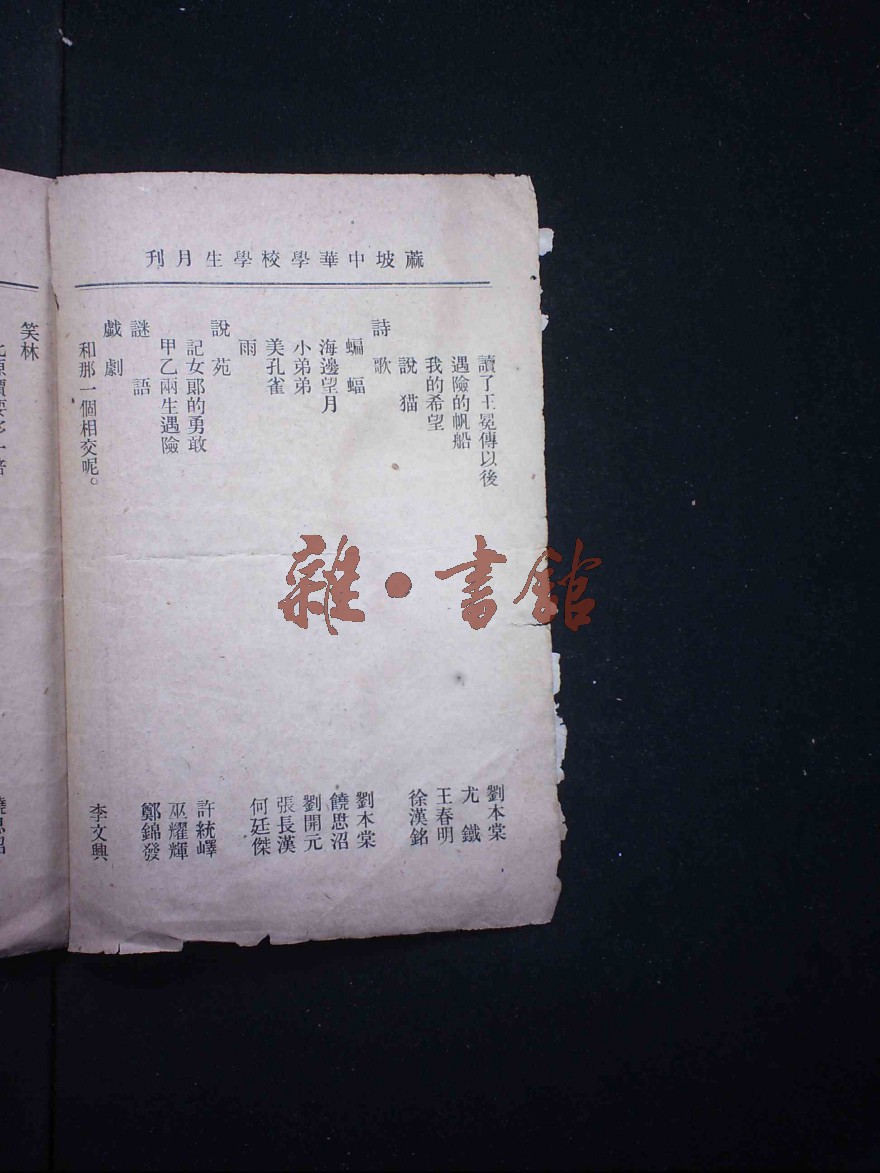 蔴坡中華學校學生月刊
讀了王冕傳以後 劉本棠
遇險的帆船 尤鐵
我的希望 王春明
說猫 徐漢銘
詩歌
蝙蝠 劉本棠
海邊望月 饒思沼
小弟弟 劉開元
美孔雀 張長漢
雨 何廷傑
說苑
記女郎的勇敢 許統嶧
甲乙兩生遇險 巫耀輝
謎語 鄭錦發
戯劇
和那一個相交呢。 李文興
笑林
雜·書館